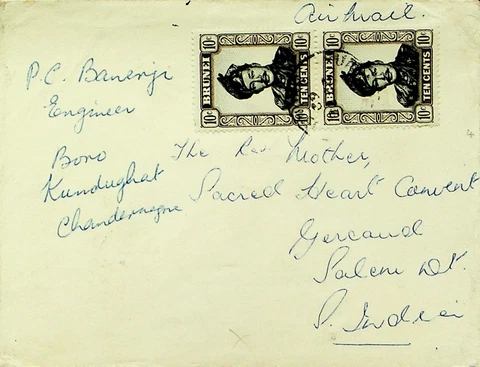 Air Mail.
10c BRUNEI 10c TEN CENTS
10c BRUNEI 10c TEN CENTS
P.C. Banerji
Engineer
Boro
Kundughat
Chandernagore
The Rev Mother,
Sacred Heart Convent
Yercaud
Salem Dt.
S. India